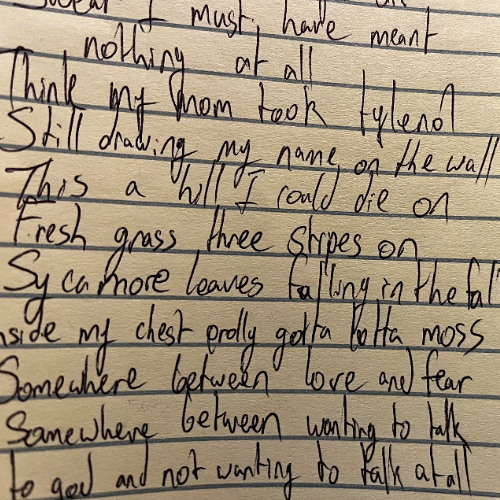 I must, have meant
nothing at all
Think my mom took tylenol
Still drawing my name on the wall
This a hill I could die on
Fresh grass three stripes on
Sycamore leaves falling in the fall
nside my chest prolly gotta lotta moss
Somewhere between love and fear
Somewhere between wanting to talk
to god and not wanting to talk at all